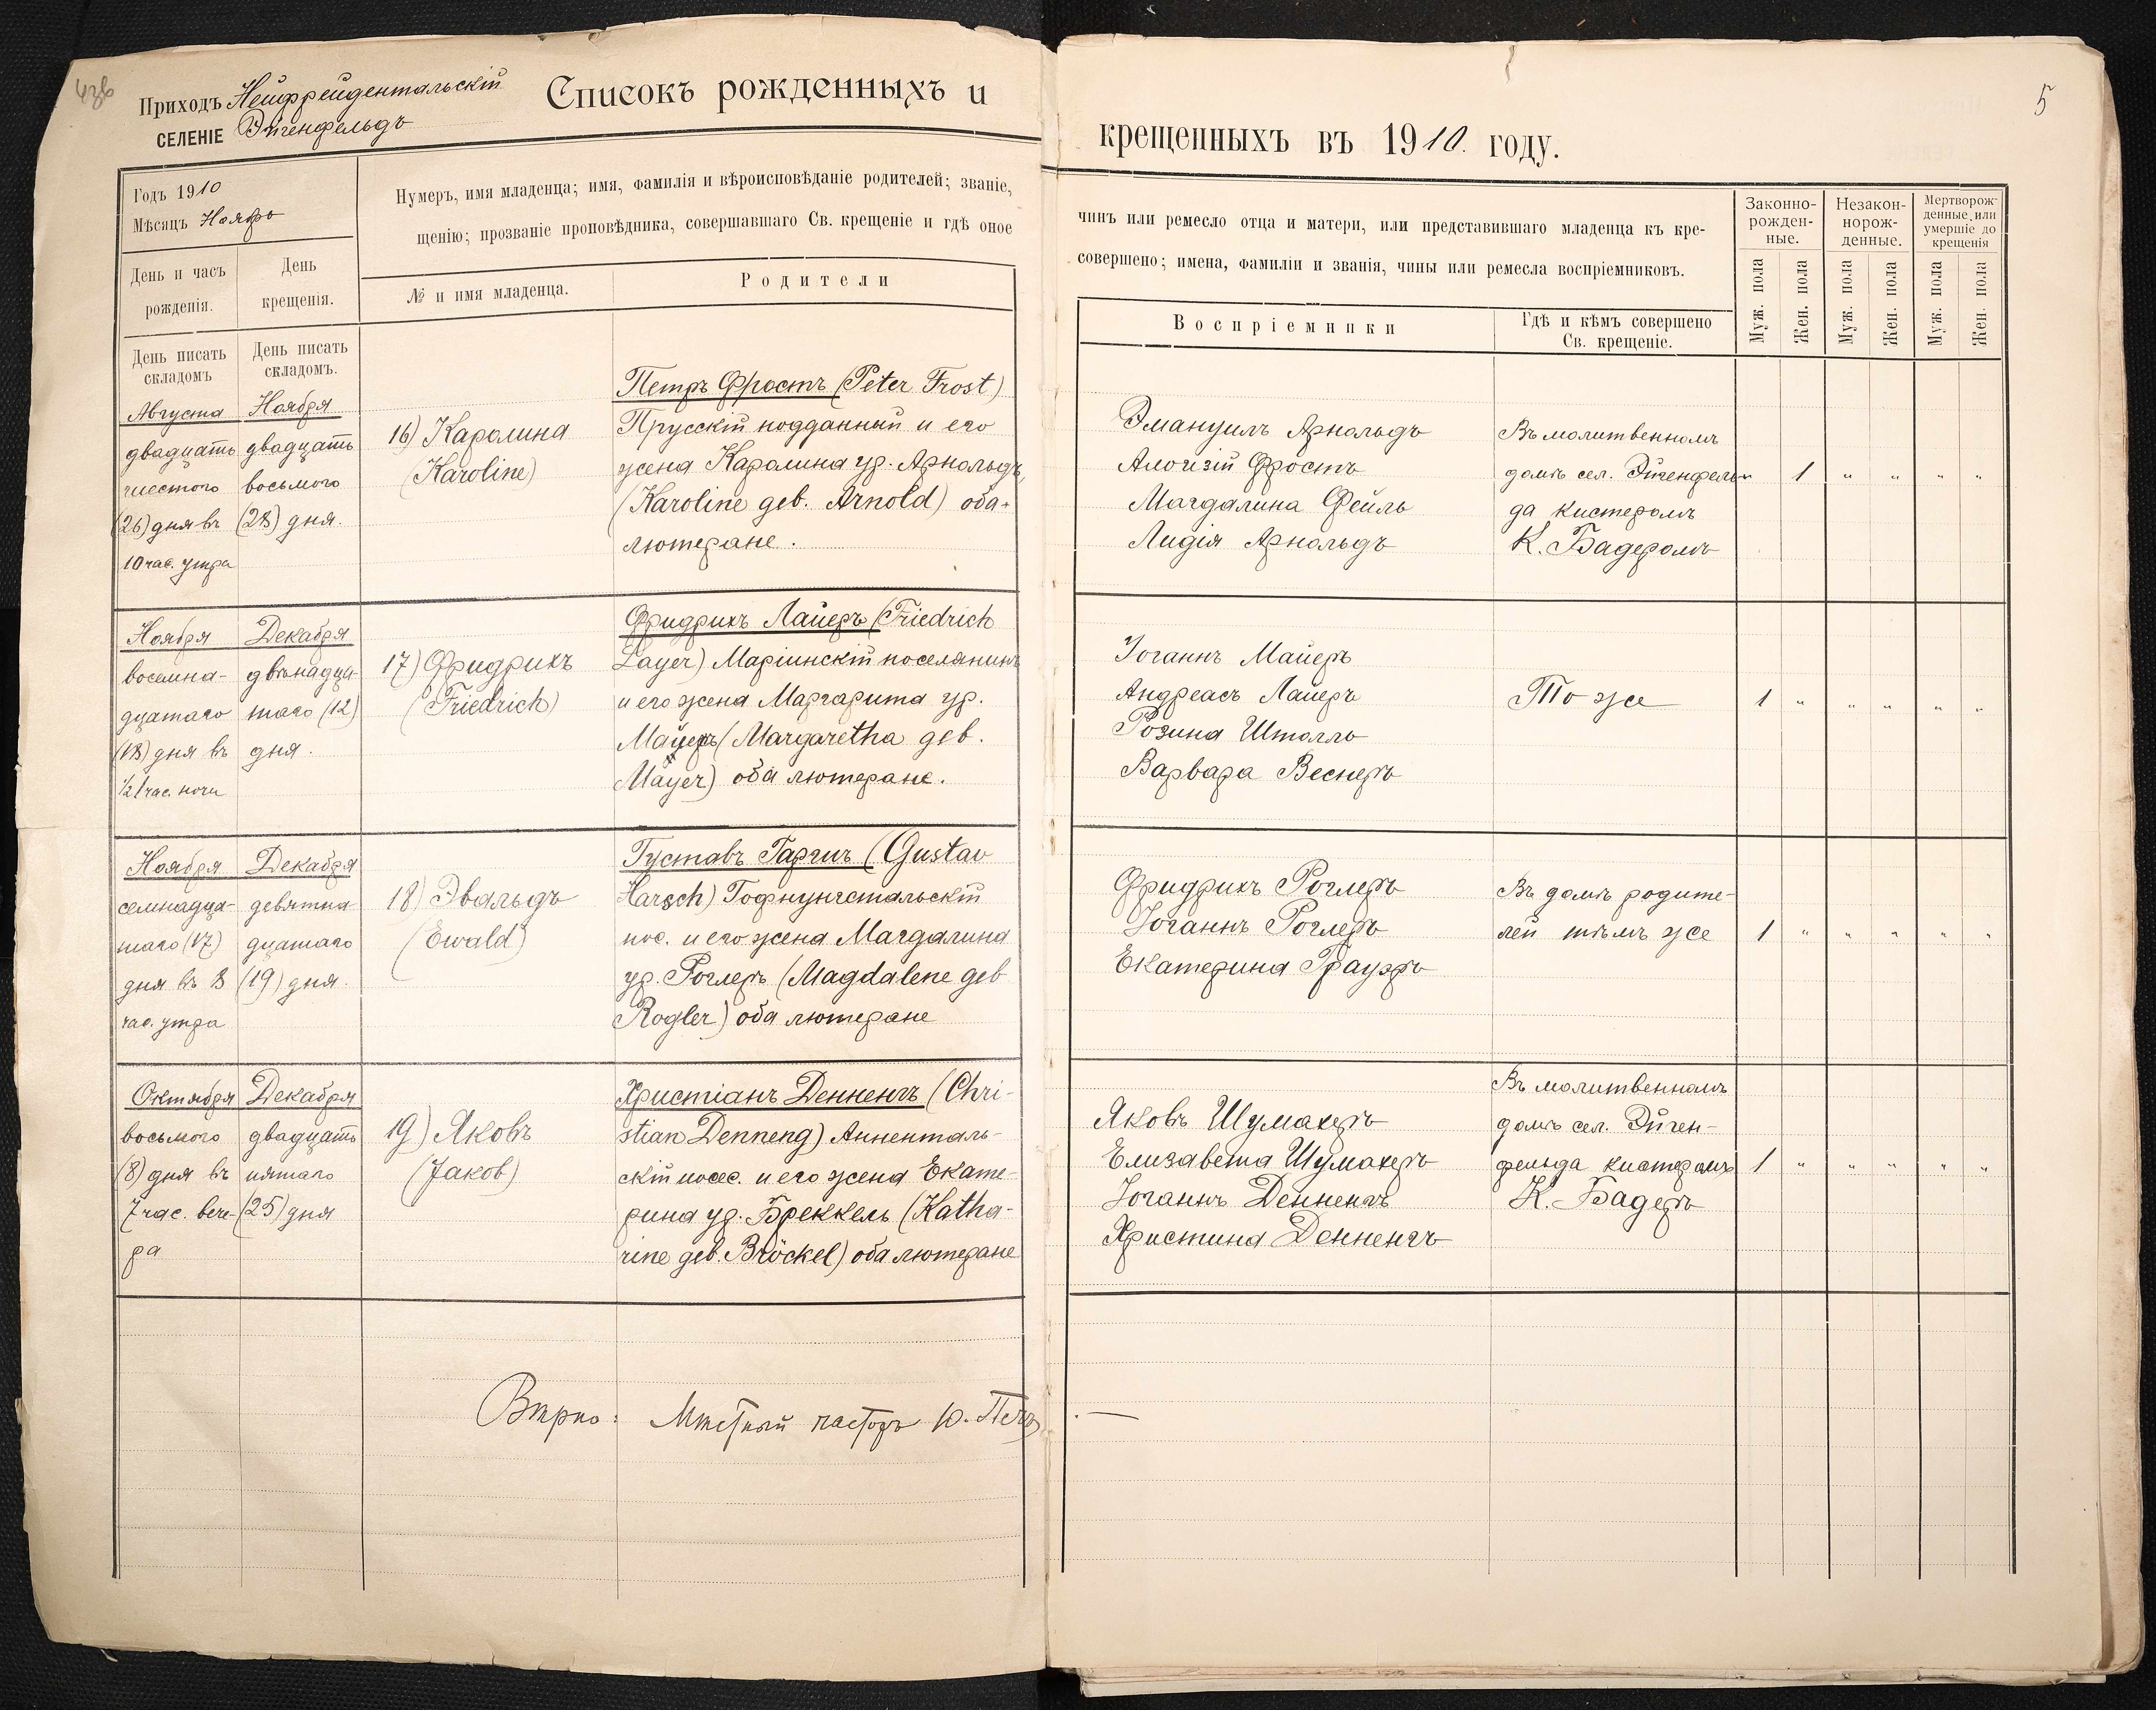 436
Приходъ Нейфрейдентальскій
СЕЛЕНІЕ Эйгенфельдъ
Списокъ рожденныхъ и
Годъ 1910
Мѣсяцъ Ноябрь
Нумеръ, имя младенца; имя, фамилія и вѣроисповѣданіе родителей; званіе,
щенію; прозваніе проповѣдника, совершавшаго Св. крещеніе и гдѣ оное
День и часъ
рожденія.
День
крещенія.
№ и имя младенца.
Родители
День писать
складомъ
День писать
складомъ.
Августа
двадцать
шестого
(26) дня въ
10 час. утра
Ноября
двадцать
восьмого
(28) дня.
16) Каролина
(Karoline)
Петръ Фростъ (Peter Frost)
Прусскій подданный и его
жена Каролина ур. Арнольдъ,
(Karoline geb. Arnold) оба
лютеране.
Ноября
восемна-
дцатаго
(18) дня въ
1/2 1 час. ночи
Декабря
двѣнадца-
таго (12)
дня.
17) Фридрихъ
(Friedrich)
Фридрихъ Лайеръ (Friedrich
Layer) Маріинскій поселянинъ
и его жена Маргарита ур.
Майеръ (Margaretha geb.
Mayer) оба лютеране.
Ноября
семнадца-
таго (17)
дня въ 8
час. утра
Декабря
девятна-
дцатаго
(19) дня.
18) Эвальдъ
(Ewald)
Густавъ Гаршъ (Gustav
Harsch) Гофнунгстальскій
пос. и его жена Магдалина
ур. Роглеръ (Magdalene geb
Rogler) оба лютеране
Октября
восьмого
(8) дня въ
7 час. вече-
ра
Декабря
двадцать
пятаго
(25) дня
19) Яковъ
(Jakob)
Христіанъ Денненгъ (Chri-
stian Denneng) Анненталь-
скій посел. и его жена Екате-
рина ур. Бреккель (Katha-
rine geb. Bröckel) оба лютеране
Вѣрно: Мѣстный пасторъ
5
крещенныхъ въ 1910. году.
чинъ или ремесло отца и матери, или представившаго младенца къ кре-
совершено; имена, фамиліи и званія, чины или ремесла воспріемниковъ.
Законно-
рожден-
ные.
Незакон-
норож-
денные.
Мертворож-
денные, или
умершіе до
крещенія
Воспріемники
Гдѣ и кѣмъ совершено
Св. крещеніе.
Муж. пола
Жен. пола
Муж. пола
Жен. пола
Муж. пола
Жен. пола
Эмануилъ Арнольдъ
Алоизій Фростъ
Магдалина Фейль
Лидія Арнольдъ
Въ молитвенномъ
домѣ сел. Эйгенфель-
да кистеромъ
К. Бадеромъ
" 1 " " " "
Іоганнъ Майеръ
Андреасъ Лайеръ
Розина Штолль
Варвара Веснеръ
То же
1 " " " " "
Фридрихъ Роглеръ
Іоганнъ Роглеръ
Екатерина Грауэръ
Въ домѣ родите-
лей тѣмъ же
1 " " " " "
Яковъ Шумахеръ
Елизавета Шумахеръ
Іоганнъ Денненгъ
Христина Денненгъ
Въ молитвенномъ
домѣ сел. Эйген-
фельда кистеромъ
К. Бадеръ
1 " " " " "